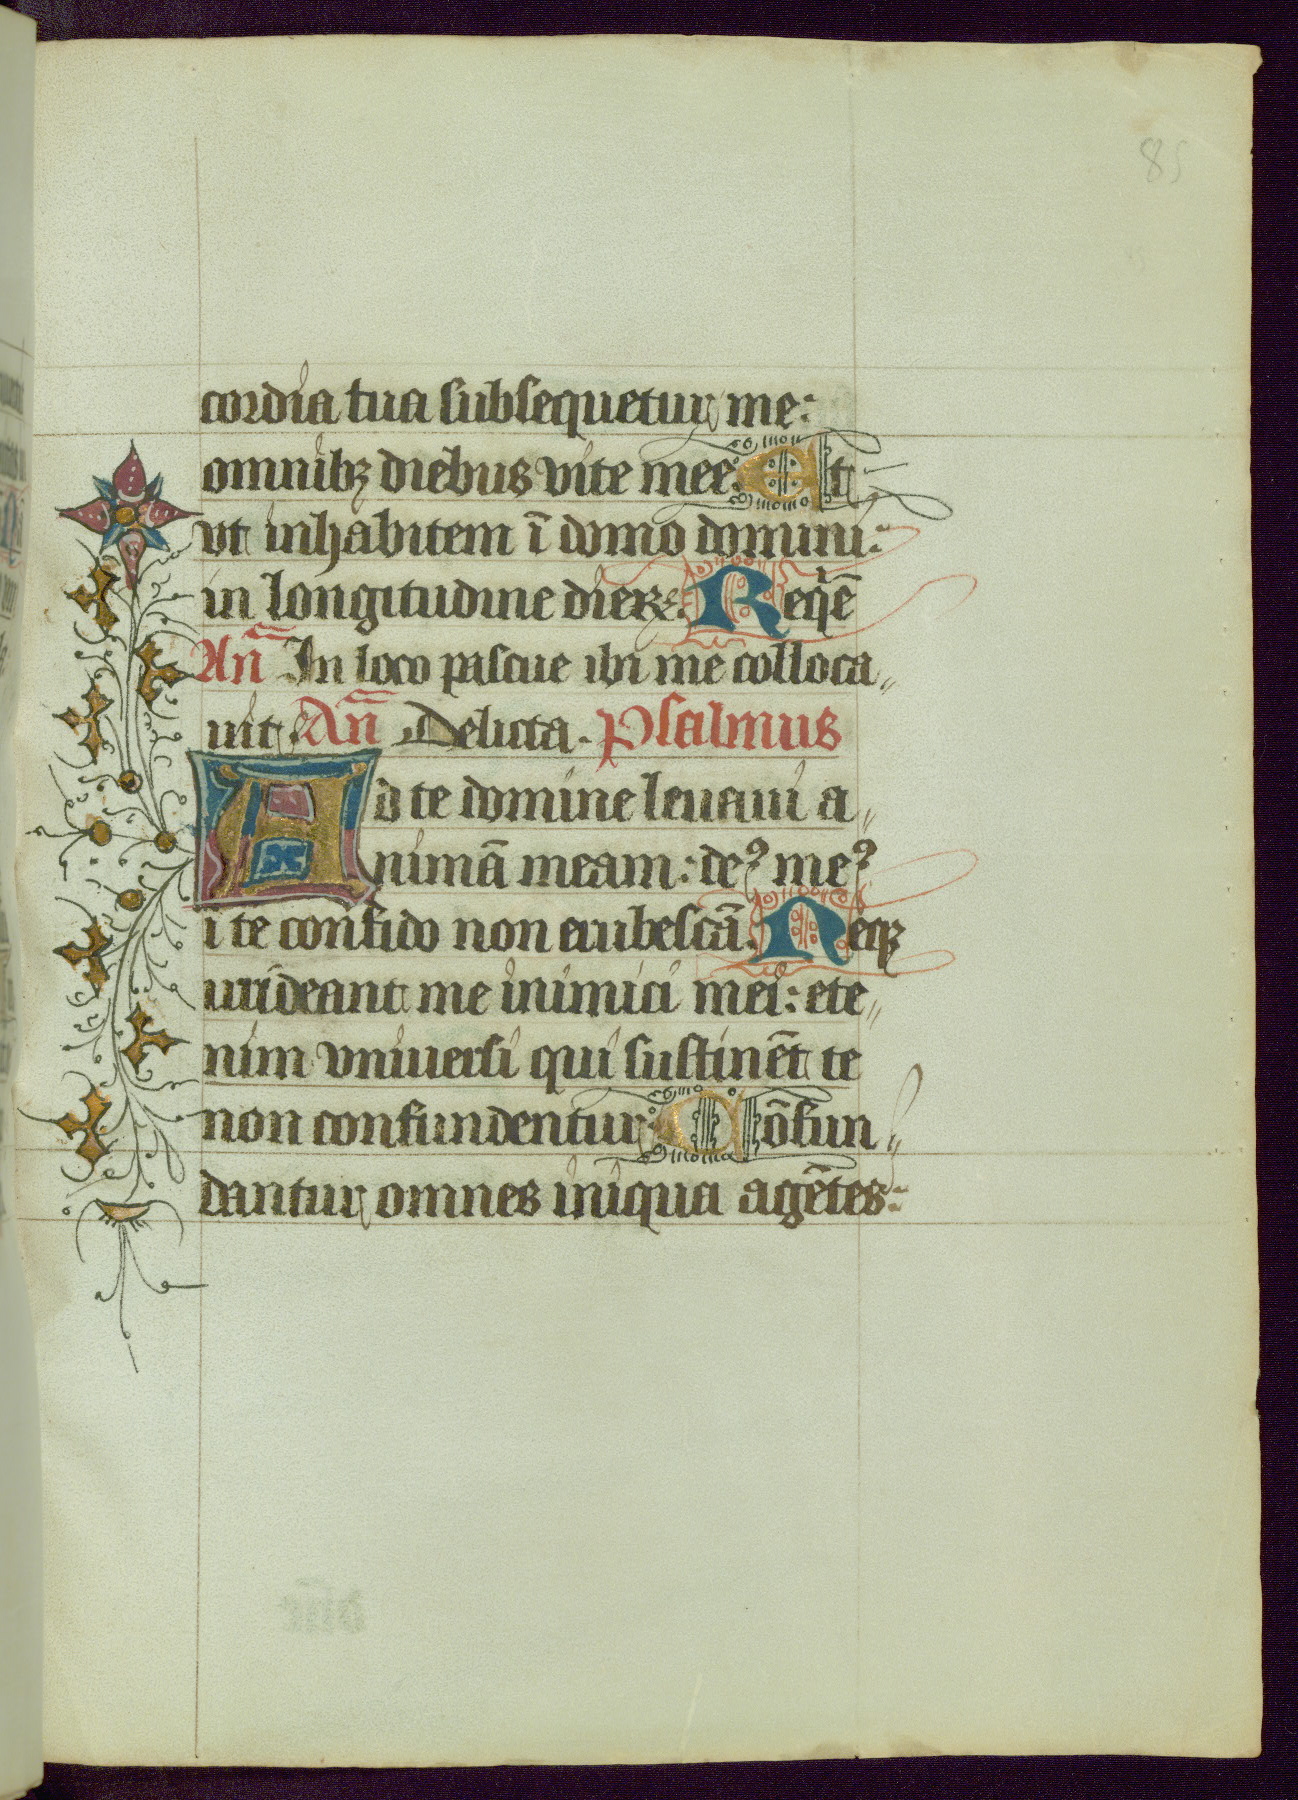 85
cordia tua subsequetur me:
omnibꝫ diebus vite mee. Et
vt inhabitem ī domo domini:
in longitudine dierꝝ. Reqͥē
Añ In loco pascue ibi me colloca
uit. Añ Delicta. Psalmus
Ad te domine leuaui a
nimā meam: deꝰ meꝰ
i te confido non erubescā. Neqꝫ
irrideant me inimici mei: ete
nim vniuersi qui sustinēt te
non confundentur. Cōfun
dantur omnes iniqua agētes: